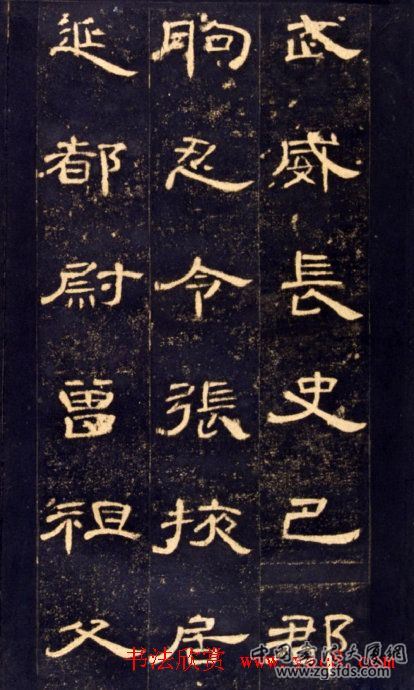 武威長史巴郡
朐忍令張掖居
延都尉曾祖父
书法欣赏 www.yac8.com
中国书法大展网
www.zgsfds.com